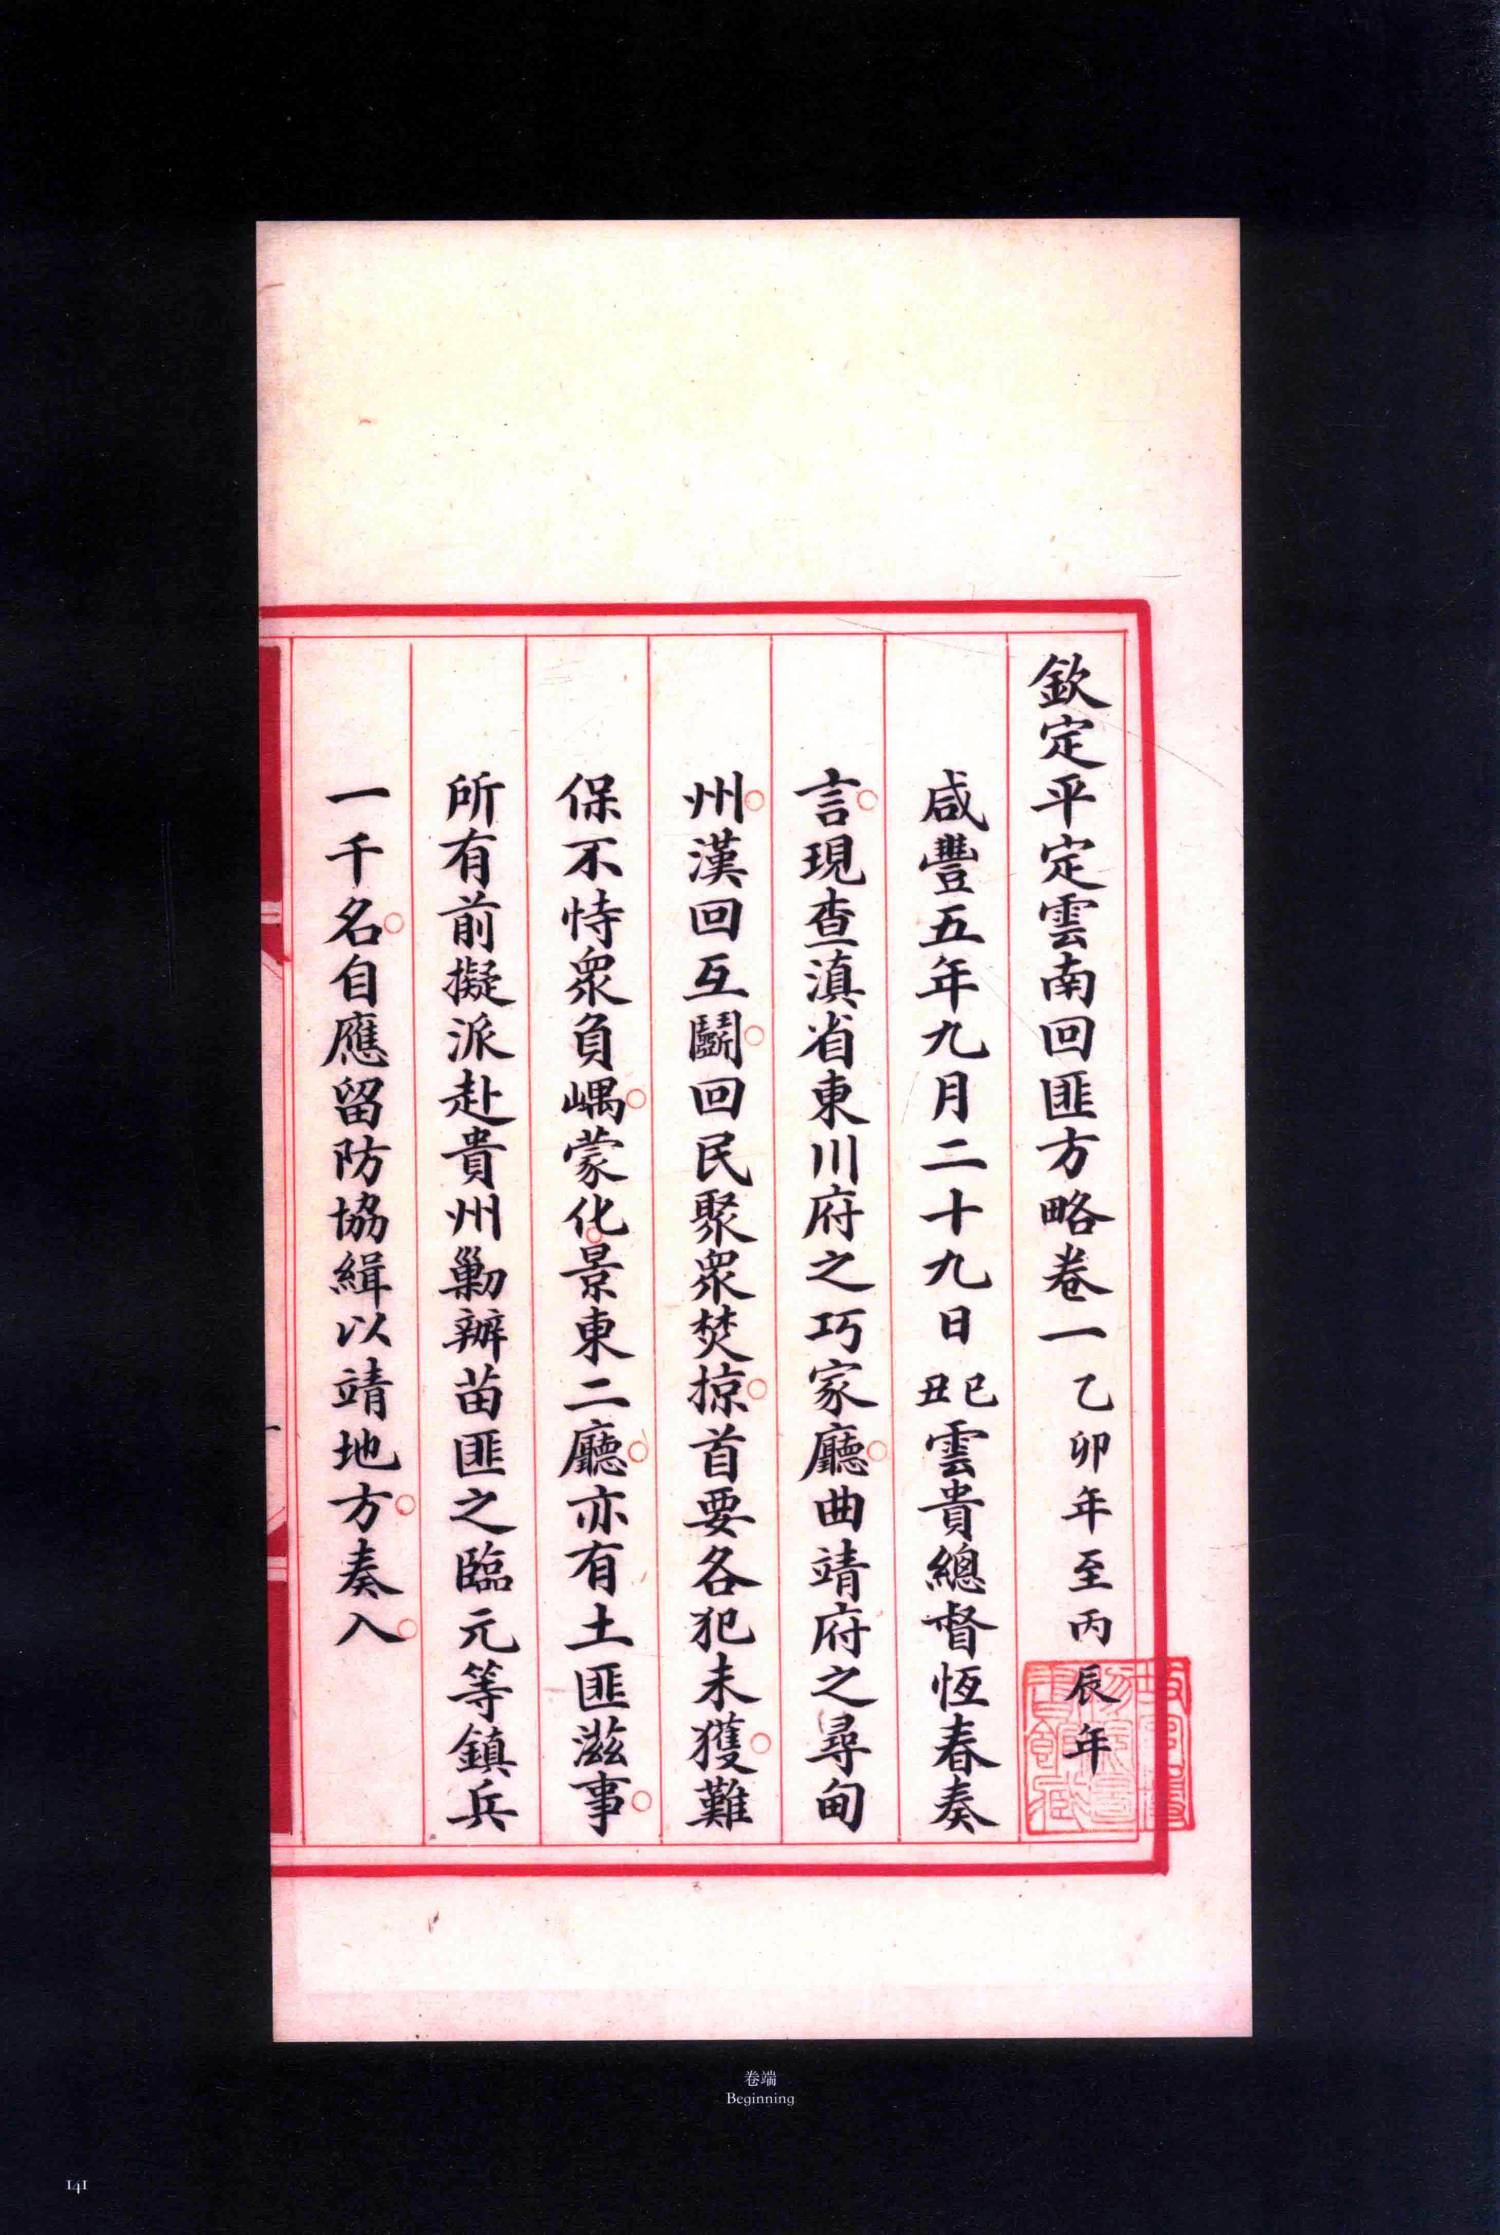 欽定平定雲南回匪方略卷一 乙卯年至丙辰年
咸豐五年九月二十九日己丑雲貴總督恆春奏
言現查滇省東川府之巧家廳曲靖府之尋甸
州漢回互鬬回民聚衆焚掠首要各犯未獲難
保不恃衆負嵎蒙化景東二廳亦有土匪滋事
所有前擬派赴貴州勦辦苗匪之臨元等鎮兵
一千名自應留防協緝以靖地方奏入
卷端
Beginning
141